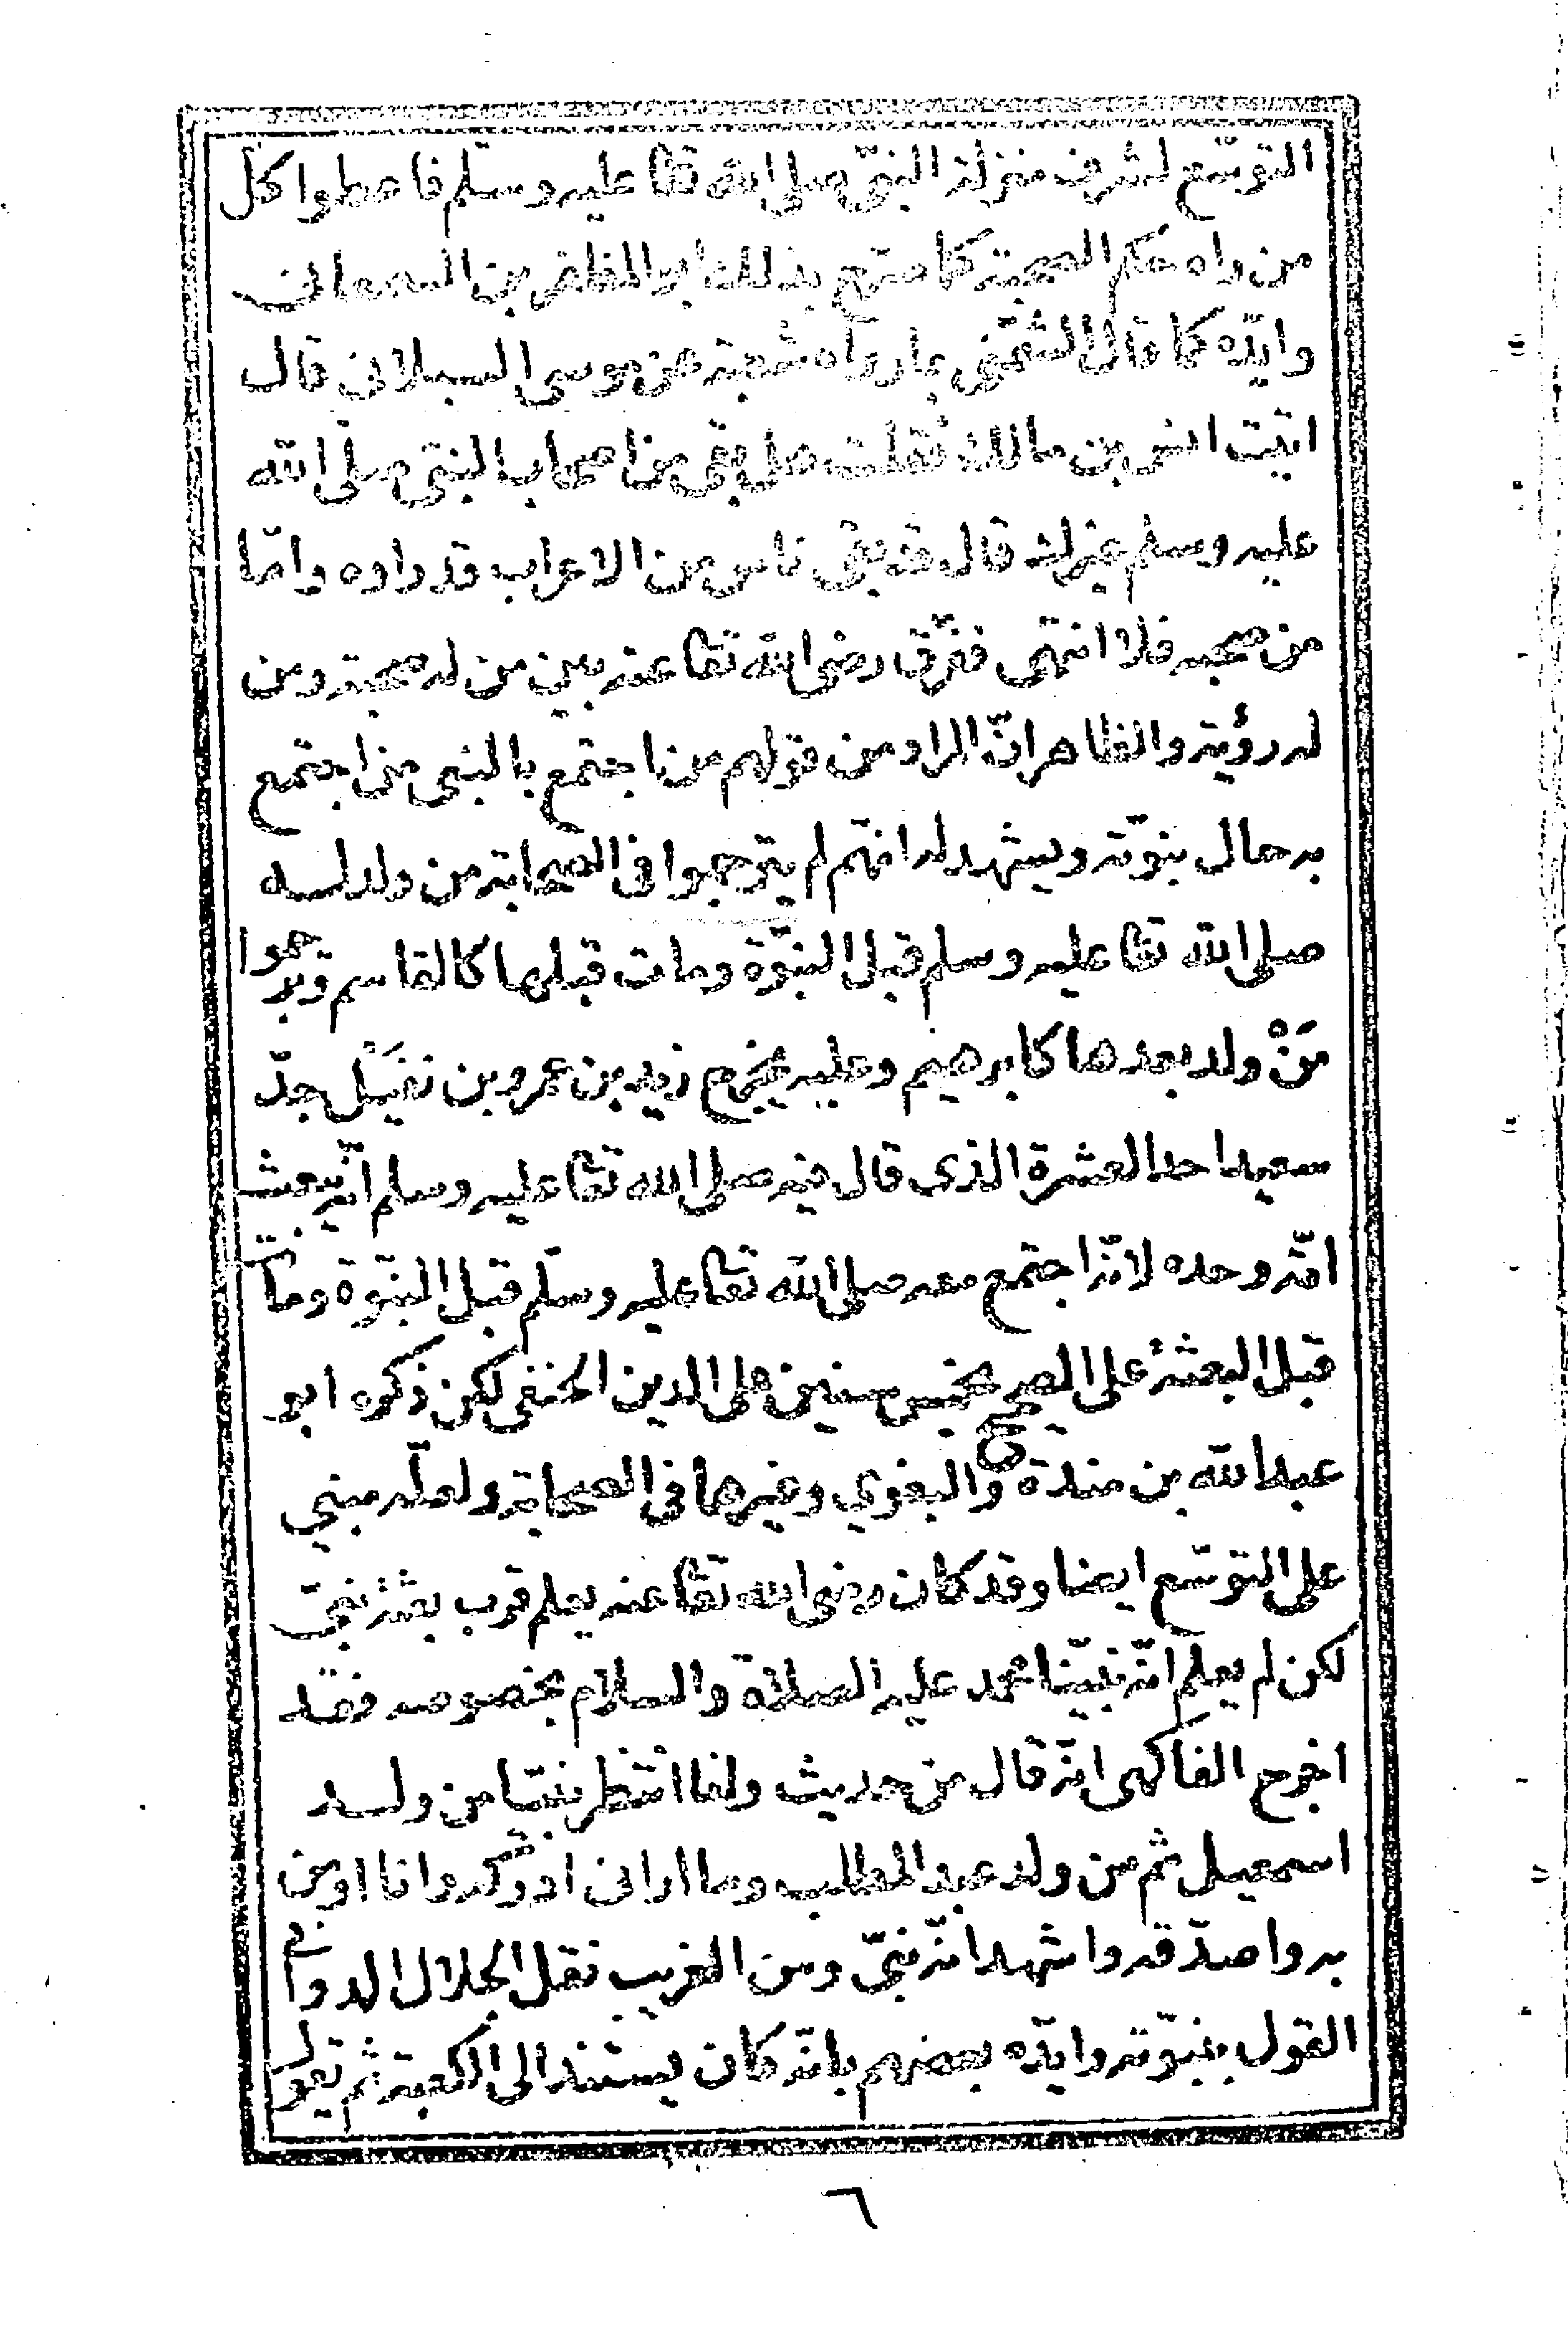 التوسّع لشرف منزلة النبيّ صلى الله تعا عليه وسلّم فاعطوا كل
من راه حكم الصحبة كما صرّح بذلك ابو المظفر بن السمعانى
وايّده كما قال الشمّنى بما رواه شعبة عن موسى السبلانى قال
اتيت انس بن مالك فقلت هل بقى من اصحاب النبى صلى الله
عليه وسلم غيرك قال قد بقى ناس من الاعراب قد راوه وامّا
من صحبه فلا انتهى ففرّق رضى الله تعا عنه بين من له صحبة ومن
له رؤية والظاهر انّ المراد من قولهم من اجتمع بالنبى من اجتمع
به حال نبوّته ويشهد له انهم لم يترجموا فى الصحابة من ولد له
صلى الله تعا عليه وسلم قبل النبوّة ومات قبلها كالقاسم وترجموا
مَنْ ولد بعدها كابرهيم وعليه يخرج زيد بن عمرو بن نفَيْل جدّ
سعيد احد العشرة الذى قال فيه صلى الله تعا عليه وسلم انّه يبعث
امّة وحده لانّه اجتمع معه صلى الله تعا عليه وسلّم قبل النبوّة ومات
قبل البعثة على الصحيح بخمس سنين على الدين الحنفى لكن ذكره ابو
عبد الله بن مندة والبغوي وغيرها فى الصحابة ولعلّه مبني
على التوسّع ايضا وقد كان رضى الله تعا عنه يعلم قرب بعثة نبىّ
لكن لم يعلم انّه نبيّنا محمد عليه الصلاة والسلام بخصوصه فقد
اخرج الفاكهى انّه قال من حديث وانا انتظر نبيّا من ولد
اسمعيل ثم من ولد عبد المطلب وما ارانى ادركه وانا اومن
به واصدّقه واشهد انّه نبىّ ومن الغريب نقل الجلال الدوانى
القول بنبوّته وايّده بعضهم بانّه كان يستند الى الكعبة ثم يقول
٦